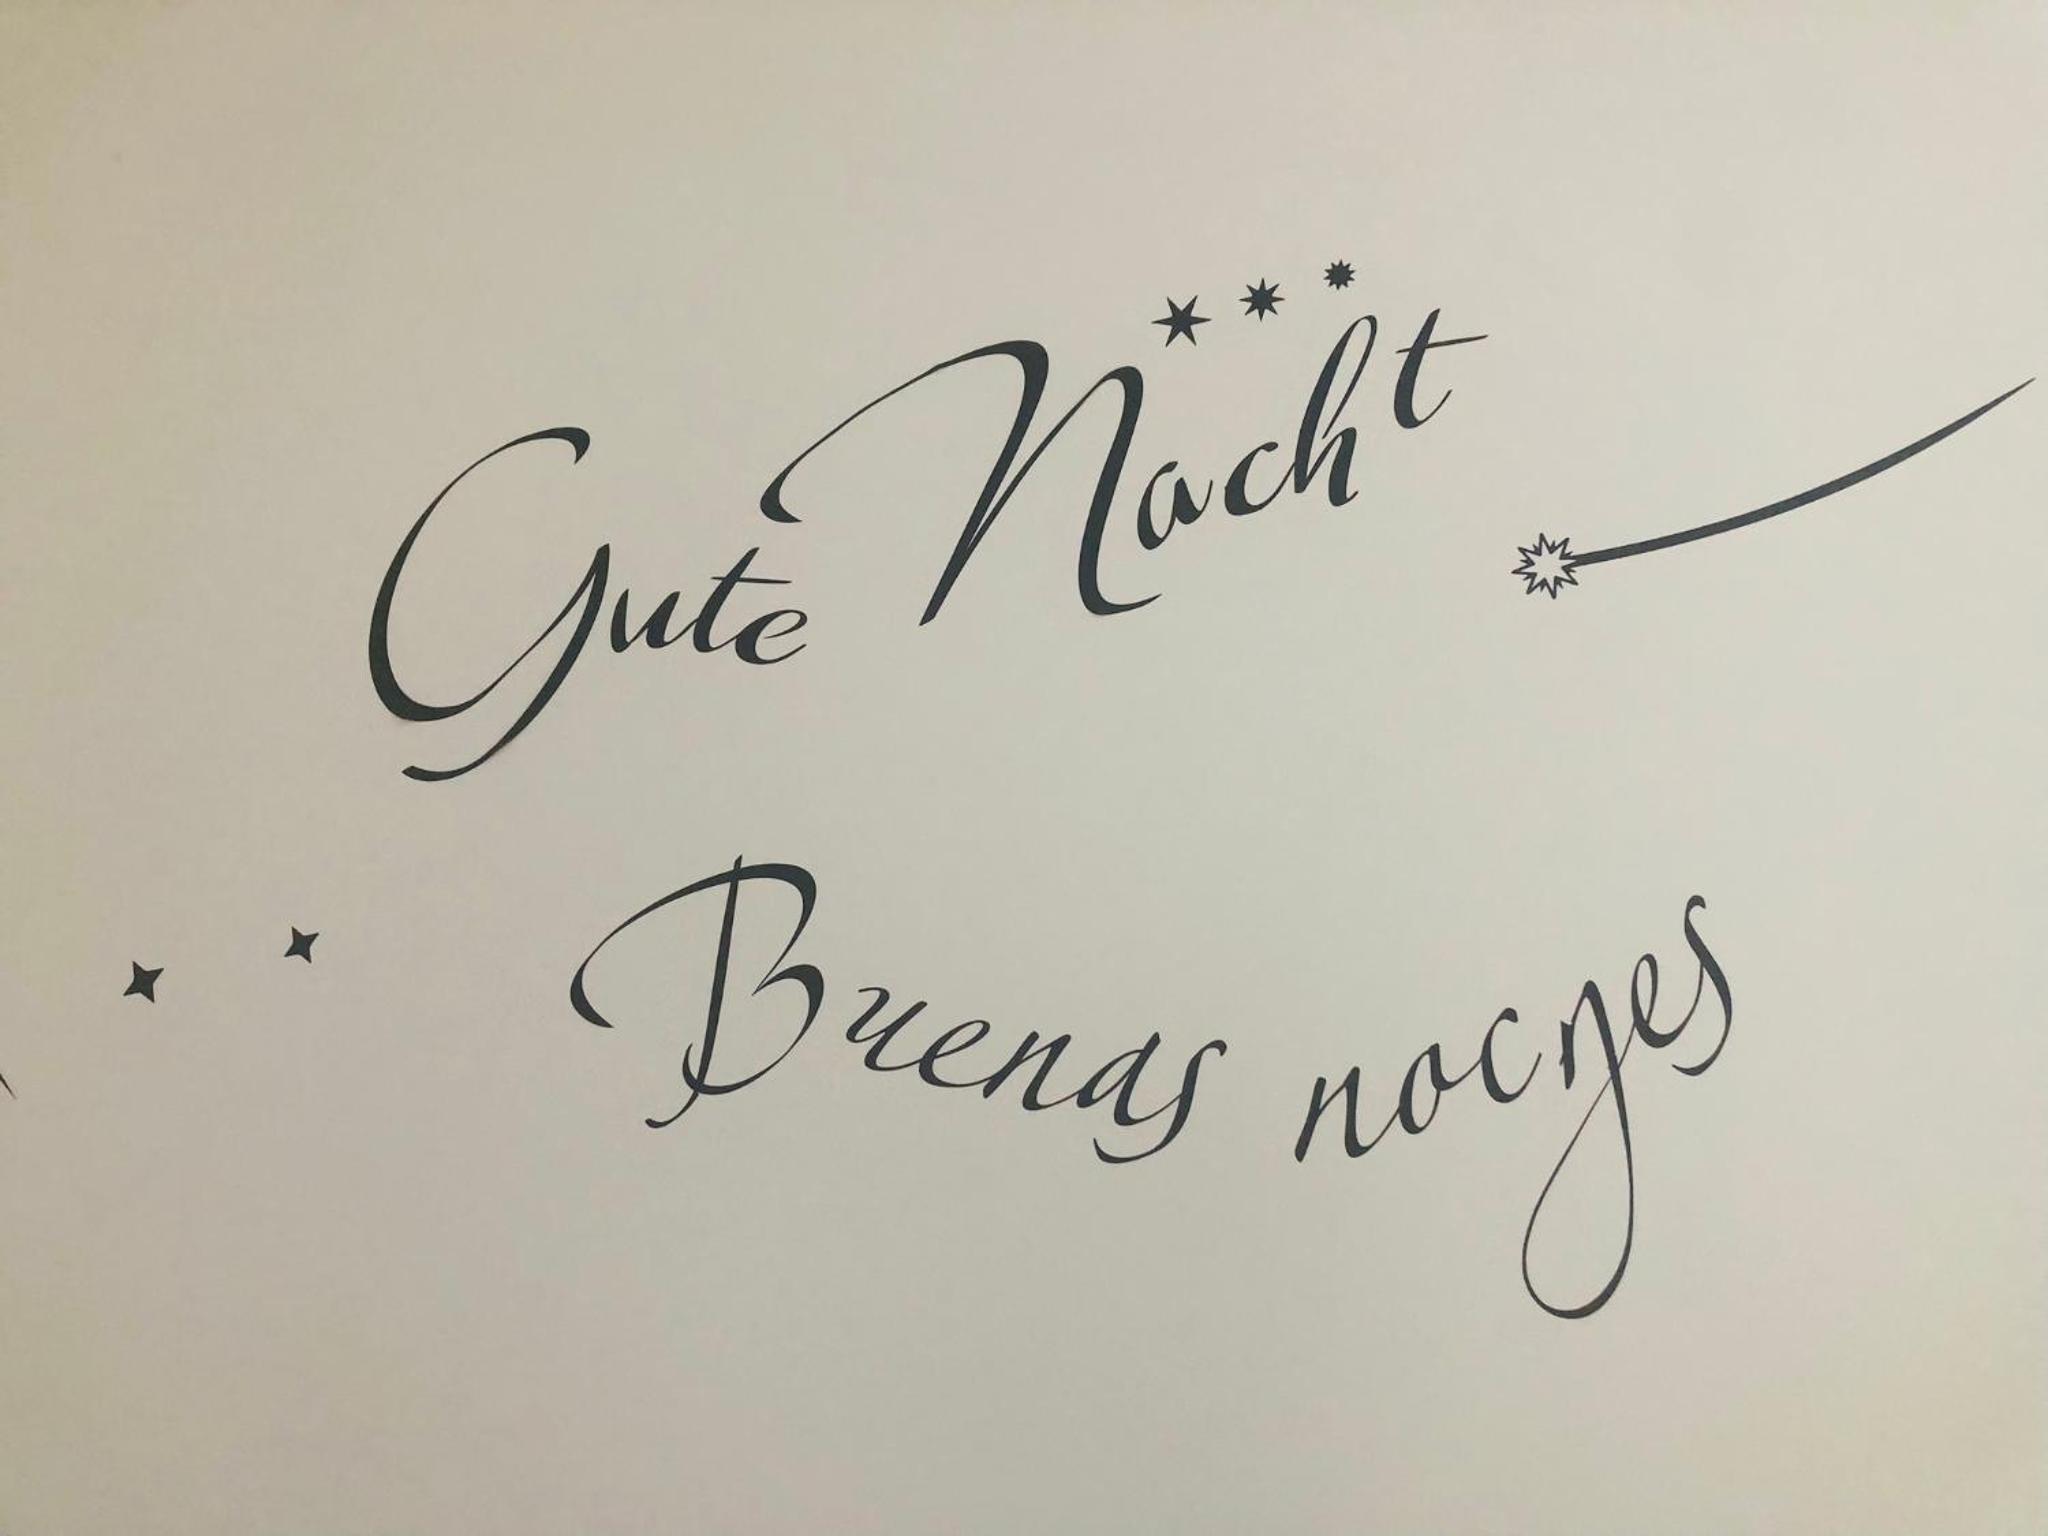 Gute Nacht
Buenas noches